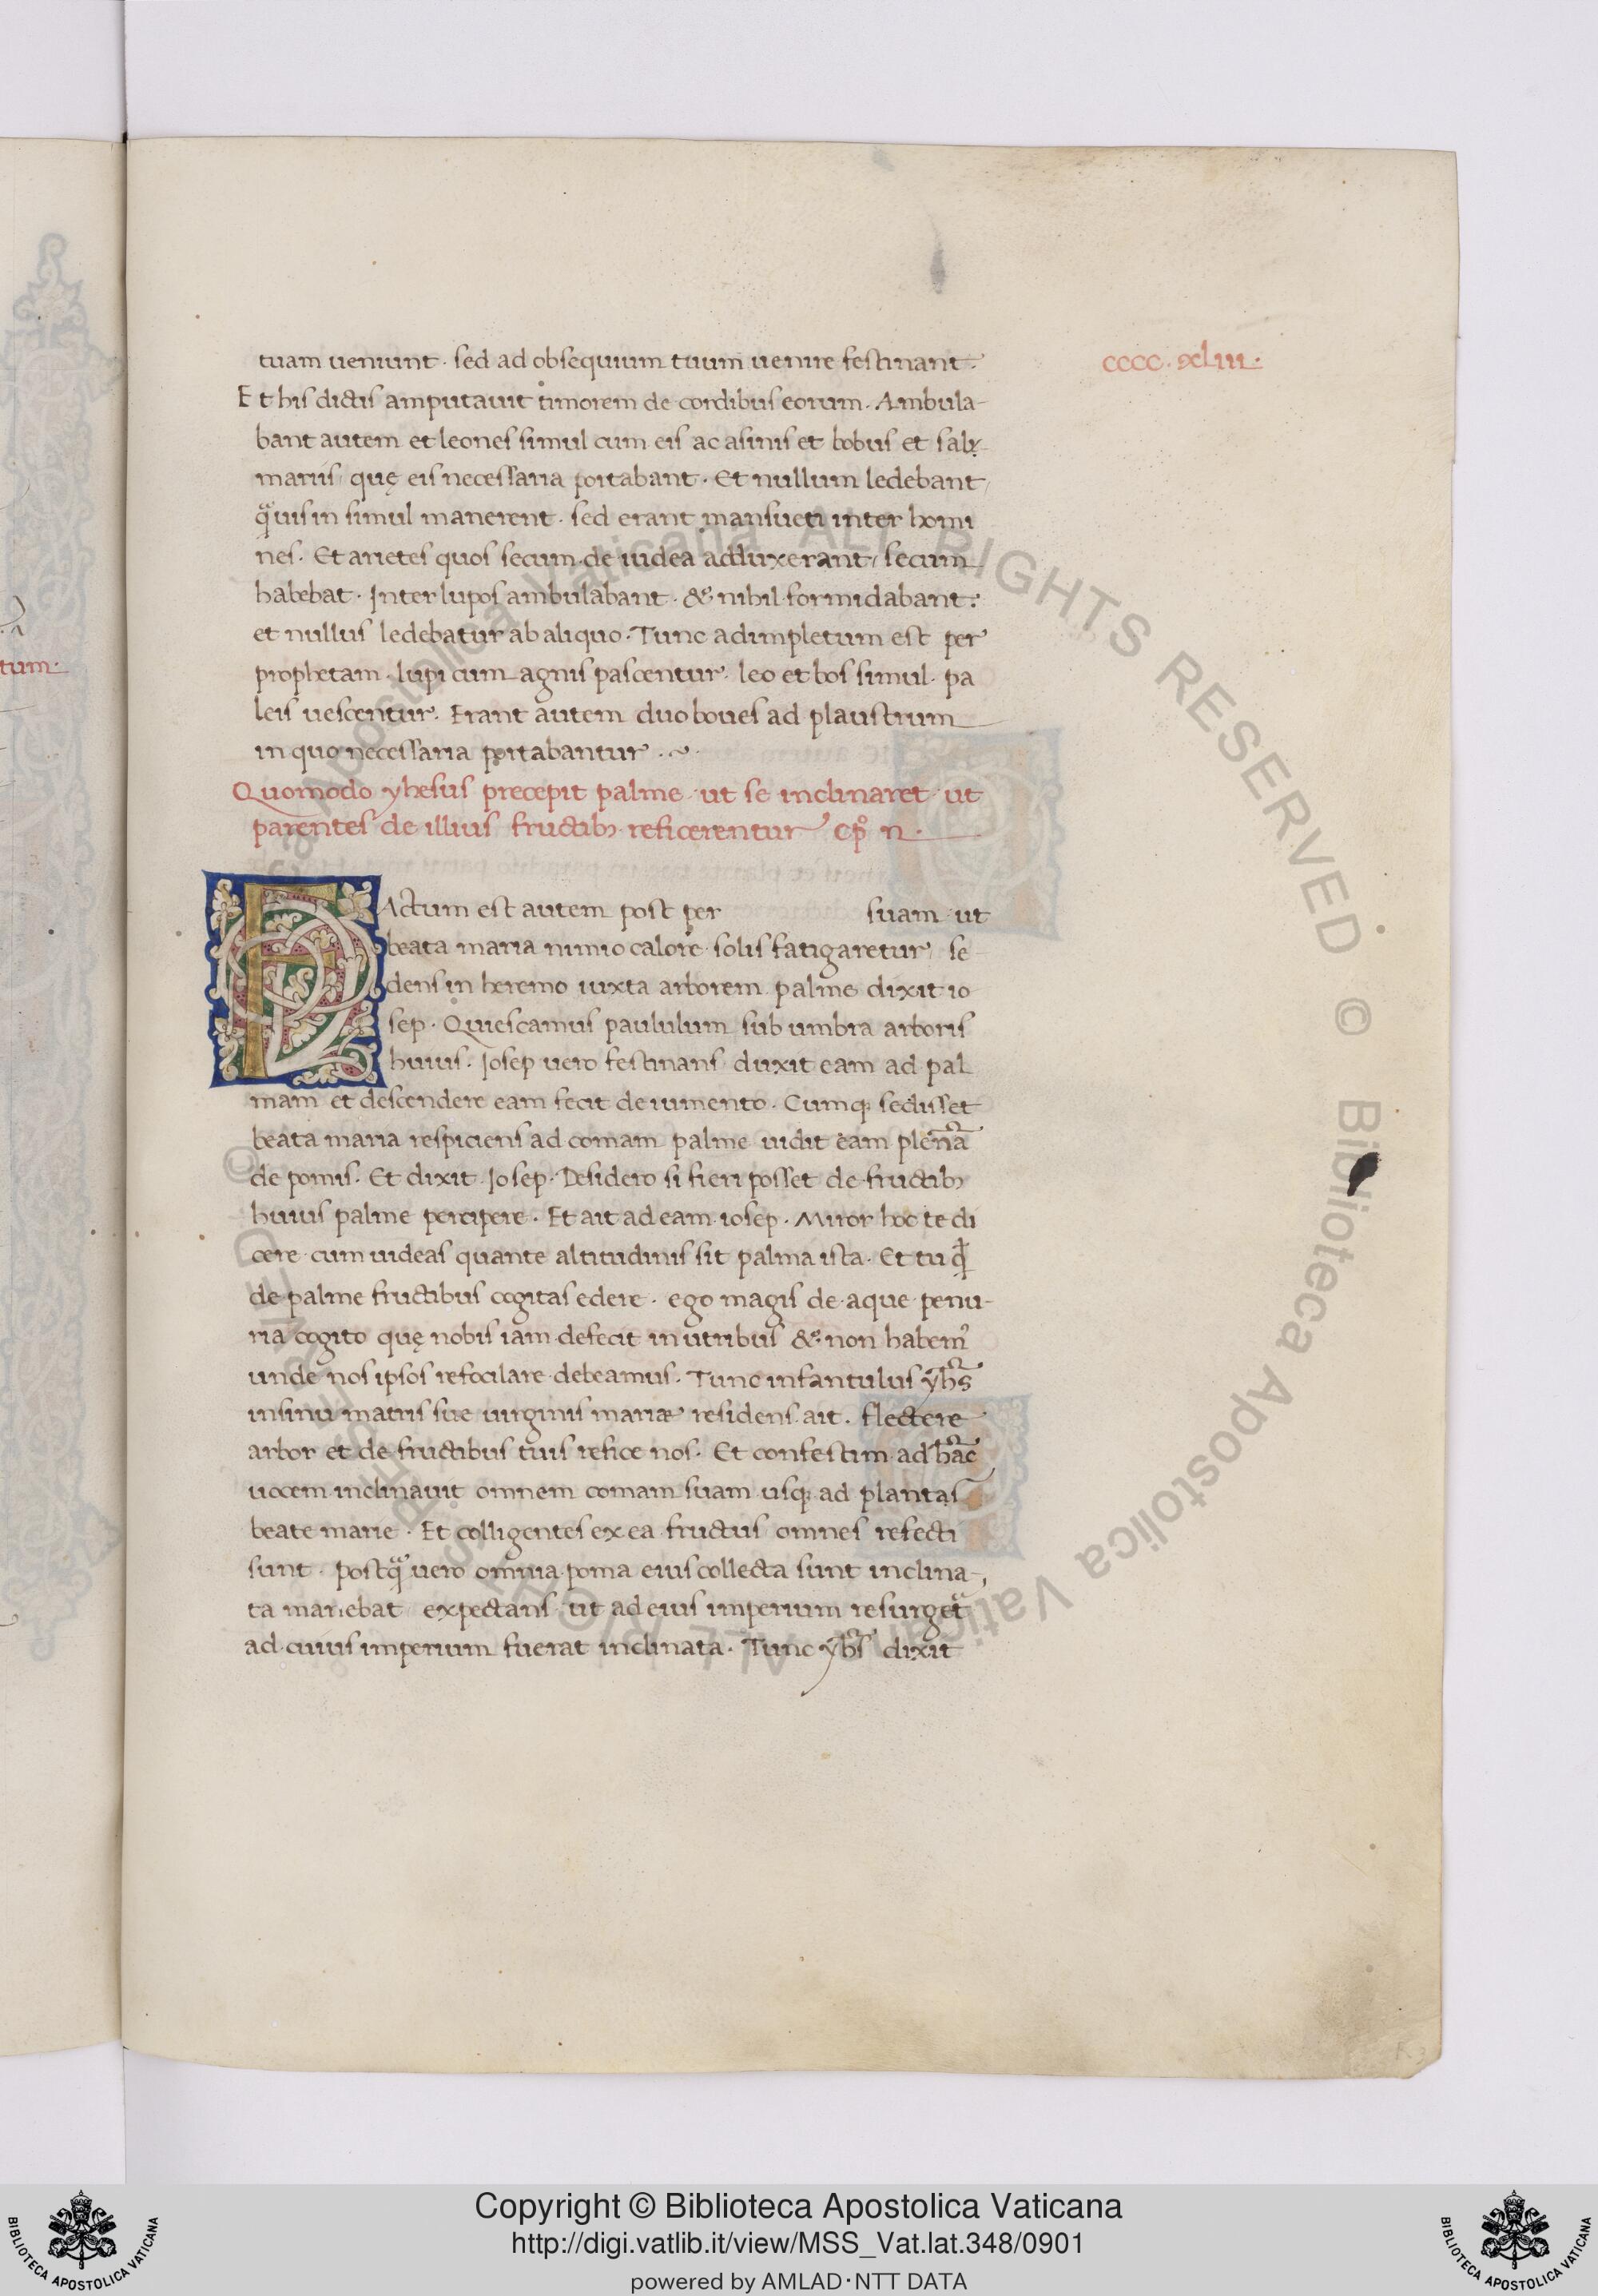 tuam ueniunt · sed ad obsequium tuum uenire festinant ·
cccc · xliii ·
Et his dictis amputauit timorem de cordibus eorum · Ambula-
bant autem et leones simul cum eis ac asinis et bobus et
mariis quę eis necessaria portabant · Et nullum ledebant
q̃uis in simul manerent · sed erant mansueti inter homi
nes · Et arietes quos secum de iudea adduxerant / secum
habebat · Inter lupos ambulabant · & nihil formidabant :
et nullus ledebatur ab aliquo · Tunc adimpletum est per
prophetam · lupi cum agnis pascentur · leo et bos simul · pa
leis uescentur · Erant autem duo boues ad plaustrum
in quo necessaria portabantur · ~ ·
Quomodo yhesus precepit palme · ut se inclinaret · ut
parentes de illius fructibꝫ reficerentur Cp̊ n ·
FActum est autem post per suam ut
beata maria nimio calore solis fatigaretur / se
dens in heremo iuxta arborem palme dixit io
sep · Quiescamus paululum sub umbra arboris
huius · Iosep uero festinans duxit eam ad pal
mam et descendere eam fecit de iumento · Cumqꝫ sedisset
beata maria respiciens ad comam palme uidit eam plenã
de pomis · Et dixit Iosep · Desidero si fieri posset de fructibꝫ
huius palme percipere · Et ait ad eam iosep · Miror hoc te di
cere cum uideas quante altitudinis sit palma ista · Et tu
de palme fructibus cogitas edere · ego magis de aque penu-
ria cogito quę nobis iam defecit in utribus & non habemꝰ
unde nos ipsos refocilare debeamus · Tunc infantulus yh̃s
in sinu matris sue uirginis mariæ residens ait · flectere
arbor et de fructibus tuis refice nos · Et confestim ad hãc
uocem inclinauit omnem comam suam usqꝫ ad plantas
beate marie · Et colligentes ex ea fructus omnes refecti
sunt · postq̃ uero omnia poma eius collecta sunt inclina-
ta manebat expectans ut ad eius imperium resurget̃
ad cuius imperium fuerat inclinata · Tunc yh̃s dixit
tum ·
© Biblioteca Apostolica Vaticana ALL RIGHTS RESERVED
© Biblioteca Apostolica Vaticana ALL RIGHTS RESERVED
Copyright © Biblioteca Apostolica Vaticana
http://digi.vatlib.it/view/MSS_Vat.lat.348/0901
powered by AMLAD·NTT DATA
BIBLIOTECA APOSTOLICA VATICANA
BIBLIOTECA APOSTOLICA VATICANA